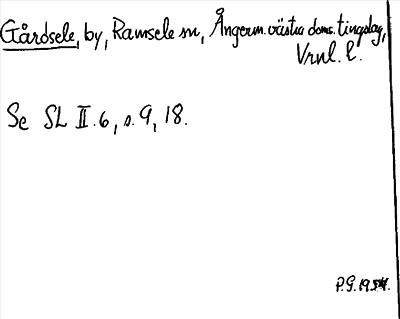 Gårdsele, by, Ramsele sn, Ångerm. västra doms. tingslag,
Vrnl. l.
Se SL II.6, s. 9, 18.
P.G. 1954.